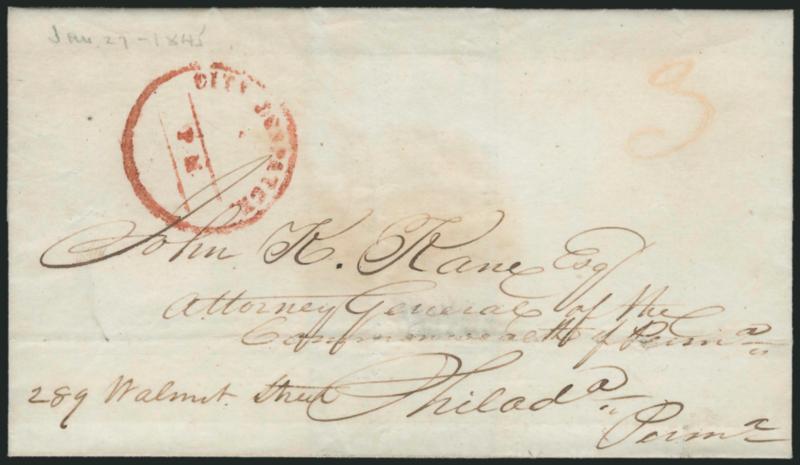 Jan. 27 - 1845
CITY DESPATCH
P 4
3
John K. Kane Esqr
Attorney General of the
Commonwealth of Penna
289 Walnut Street Philada
Penna